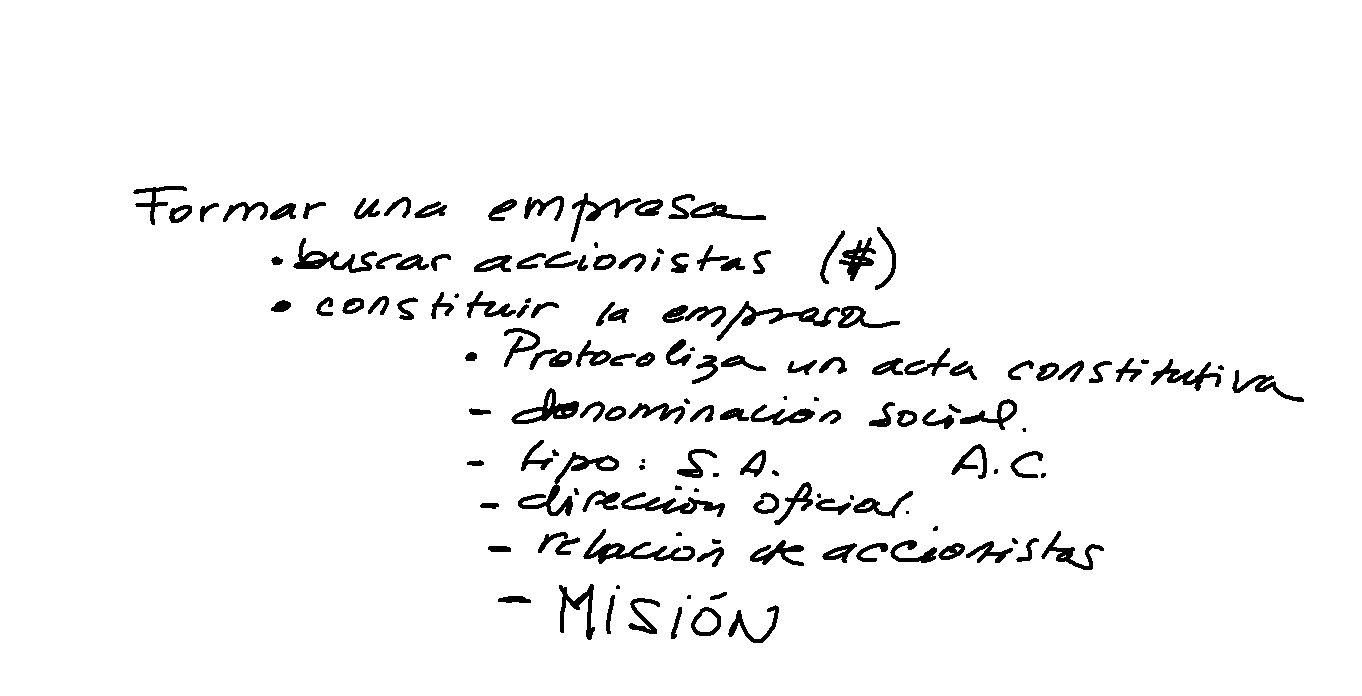 Formar una empresa
• buscar accionistas ($)
• constituir la empresa
• Protocoliza un acta constitutiva
- denominación social.
- tipo: S. A. A.C.
- dirección oficial.
- relación de accionistas
- MISIÓN